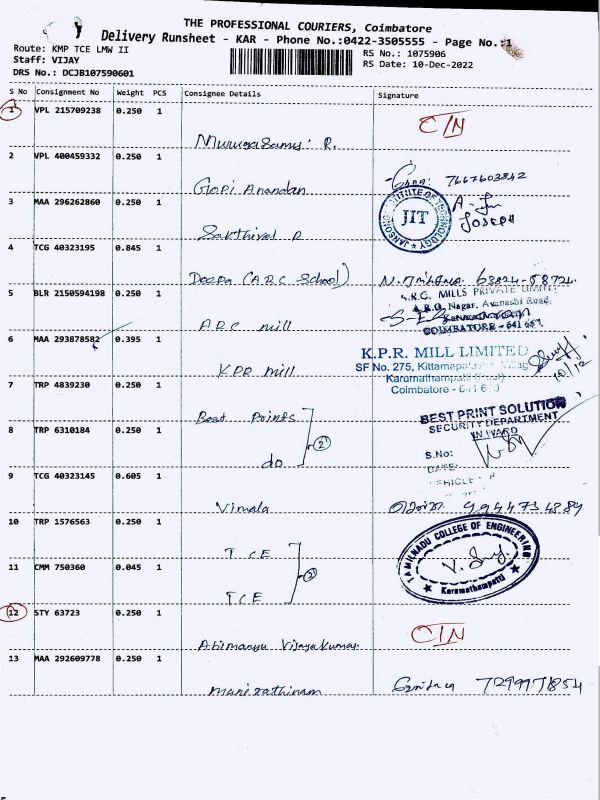 THE PROFESSIONAL COURIERS, Coimbatore
Delivery Runsheet - KAR - Phone No.:0422-3505555 - Page No.:1
Route: KMP TCE LMW II
RS No.: 1075906
Staff: VIJAY
RS Date: 10-Dec-2022
DRS No.: DCJB107590601
S No Consignment No Weight PCS Consignee Details Signature
1 VPL 215709238 0.250 1
C/N
Murugasamy R.
2 VPL 400459332 0.250 1
7667603842
Gopi Anandan
3 MAA 296262860 0.250 1
JIT
JOSEPH
Sakthivel P
4 TCG 40323195 0.845 1
Deepa (A.R.C School)
5 BLR 2150594198 0.250 1
MILLS PRIVATE LIMITED
Nagar, Avanashi Road,
COIMBATORE - 641 687
A.R.C mill
6 MAA 293878582 0.395 1
K.P.R. MILL LIMITED
SF No. 275,
Coimbatore -
10/12
K.P.R mill
7 TRP 4839230 0.250 1
BEST PRINT SOLUTION
SECURITY DEPARTMENT
INWARD
Best Prints
8 TRP 6310184 0.250 1
(2)
S.No:
DATE:
do
9 TCG 40323145 0.605 1
VEHICLE
Vimala
9944734884
10 TRP 1576563 0.250 1
TAMILNADU COLLEGE OF ENGINEERING
Karamathampatti
T.C.E
11 CMM 750360 0.045 1
(2)
T.C.E
12 STY 63723 0.250 1
C/N
Abimanyu Vijayakumar.
13 MAA 292609778 0.250 1
Marirathinam